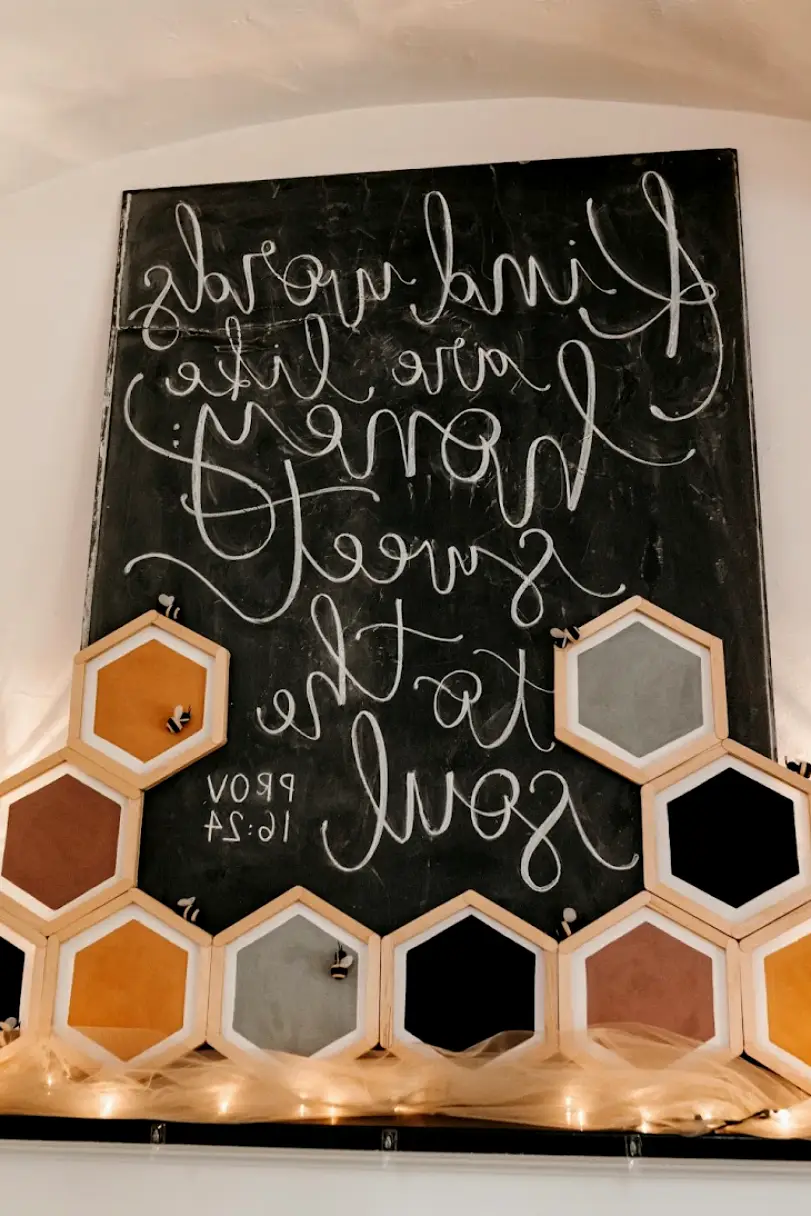 Kind words
are like
honey:
sweet
to the
soul
PROV
16:24